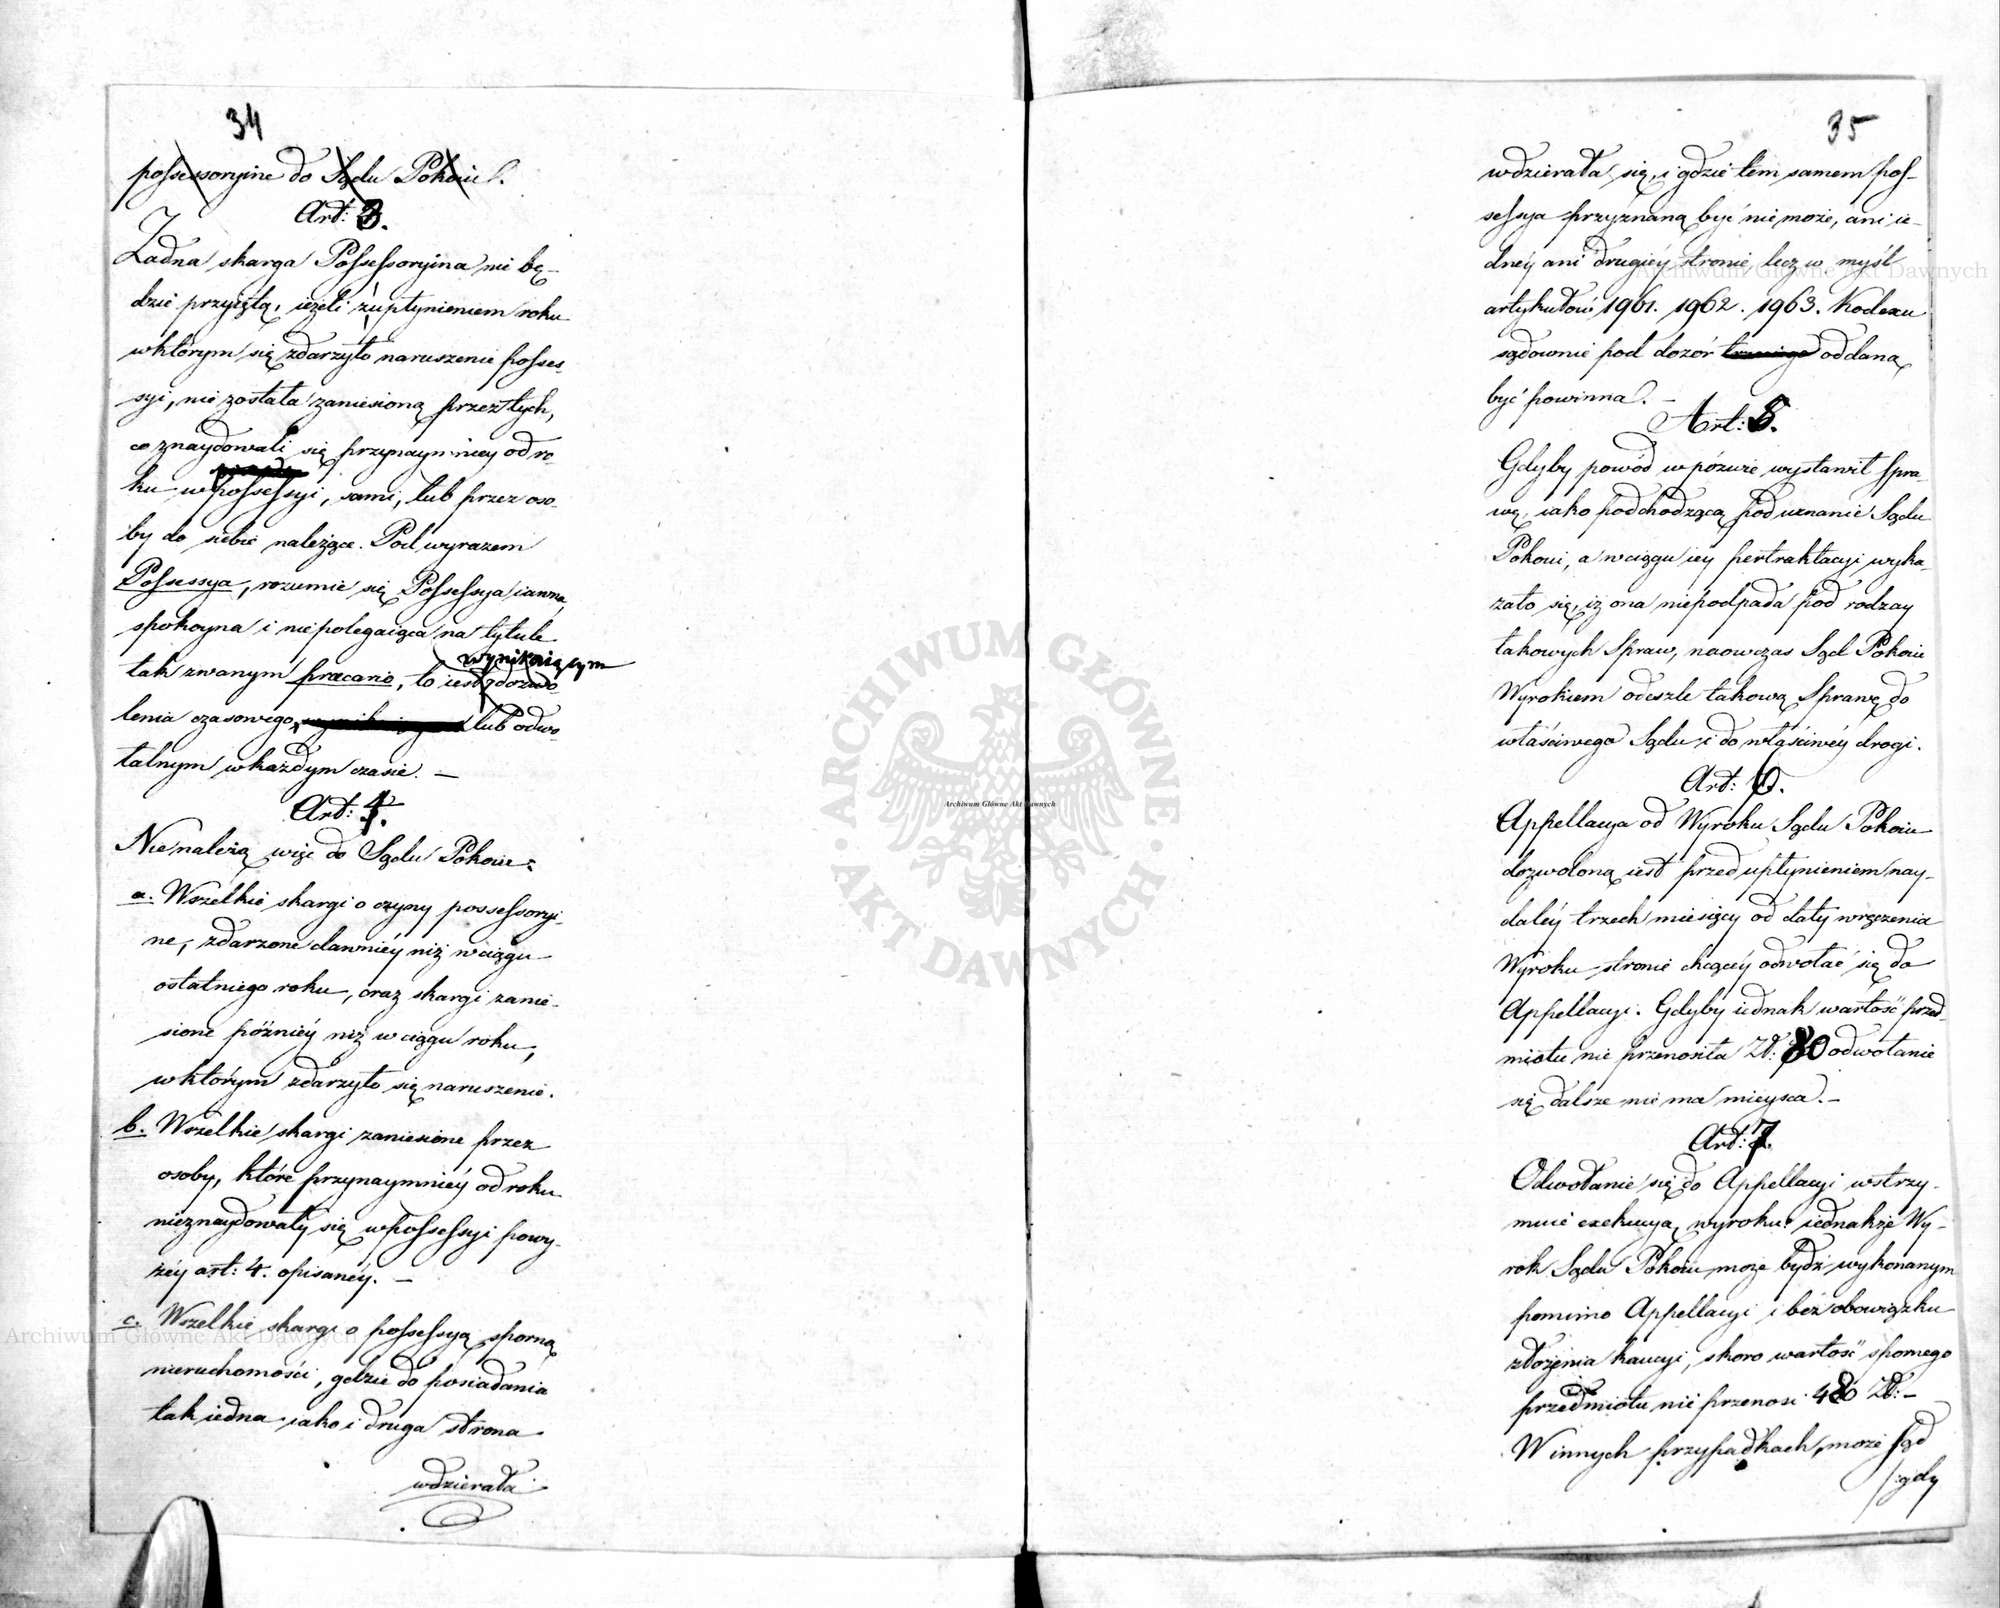 34
possessoryine do Sądu Pokoiu.
Art: 3.
Żadna skarga Possessoryina nie bę-
dzie przyiętą, ieżeli z upłynieniem roku
w którym się zdarzyło naruszenie posses-
syi, nie została zaniesioną przez tych,
co znaydowali się przynaymniey od ro-
ku w possessyi, sami, lub przez oso-
by do siebie należące. Pod wyrazem
Possessya, rozumie się Possessya iawna,
spokoyna i niepolegaiąca na tytule
wynikaiącym
tak zwanym precario, to iest z dozwo-
lenia czasowego, lub odwo-
łalnym w każdym czasie. —
Art: 4.
Nienależą więc do Sądu Pokoiu:
a. Wszelkie skargi o czyny possessoryi-
ne, zdarzone dawniéy niż w ciągu
ostatniego roku, oraz skargi zanie-
sione późniéy niż w ciągu roku,
w którym zdarzyło się naruszenie.
b. Wszelkie skargi zaniesione przez
osoby, które przynaymniéy od roku
nieznaydowały się w possessyi powy-
żéy art: 4. opisanéy. —
c. Wszelkie skargi o possessyą sporną
nieruchomości, gdzie do posiadania
tak iedna iako i druga strona
wdzierała
35
wdzierała się, i gdzie tem samem pos-
sessya przyznaną być nie może, ani ie-
dnéy ani drugiéy stronie lecz w myśl
artykułów 1961. 1962. 1963. Kodexu
sądownie pod dozór oddaną
być powinna. —
Art: 5.
Gdyby powód w pózwie wystawił spra-
wę, iako podchodzącą pod uznanie Sądu
Pokoiu, a w ciągu iey pertraktacyi wyka-
zało się, iż ona niepodpada pod rodzay
takowych Spraw, naowczas Sąd Pokoiu
Wyrokiem odeszle takową Sprawę do
właściwego Sądu i do właściwéy drogi.
Art: 6.
Appellacya od Wyroku Sądu Pokoiu
dozwoloną iest przed upłynieniem nay-
daléy trzech miesięcy od daty wręczenia
Wyroku stronie chcącéy odwołać się do
Appellacyi. Gdyby iednak wartość przed-
miotu nie przenosiła Zł: 80 odwołanie
się dalsze nie ma mieysca. —
Art: 7.
Odwołanie się do Appellacyi wstrzy-
muie exekucyą wyroku; iednakże Wy-
rok Sądu Pokoiu może bydź wykonanym
pomimo Appellacyi i béz obowiązku
złożenia kaucyi, skoro wartość spornego
przedmiotu nie przenosi 480 Zł: —
W innych przypadkach, może Sąd
/:gdy
ARCHIWUM GŁÓWNE
AKT DAWNYCH
Archiwum Główne Akt Dawnych
Archiwum Główne Akt Dawnych
Archiwum Główne Akt Dawnych